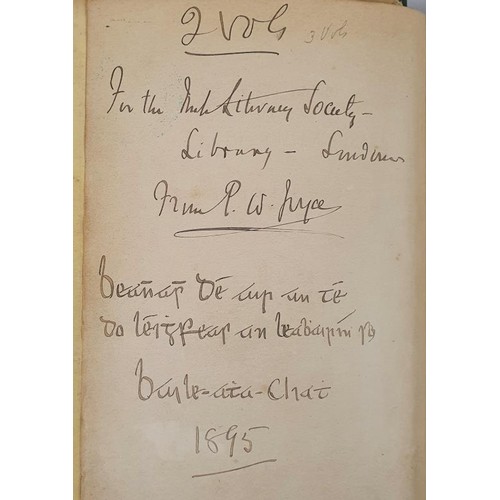 2 Vols 3 Vols
For the Irish Literary Society –
Library – London
From P. W. Joyce
beañaċt Dé air an té
do léiġfeas an leabairín so
baile-ata-Cliat
1895